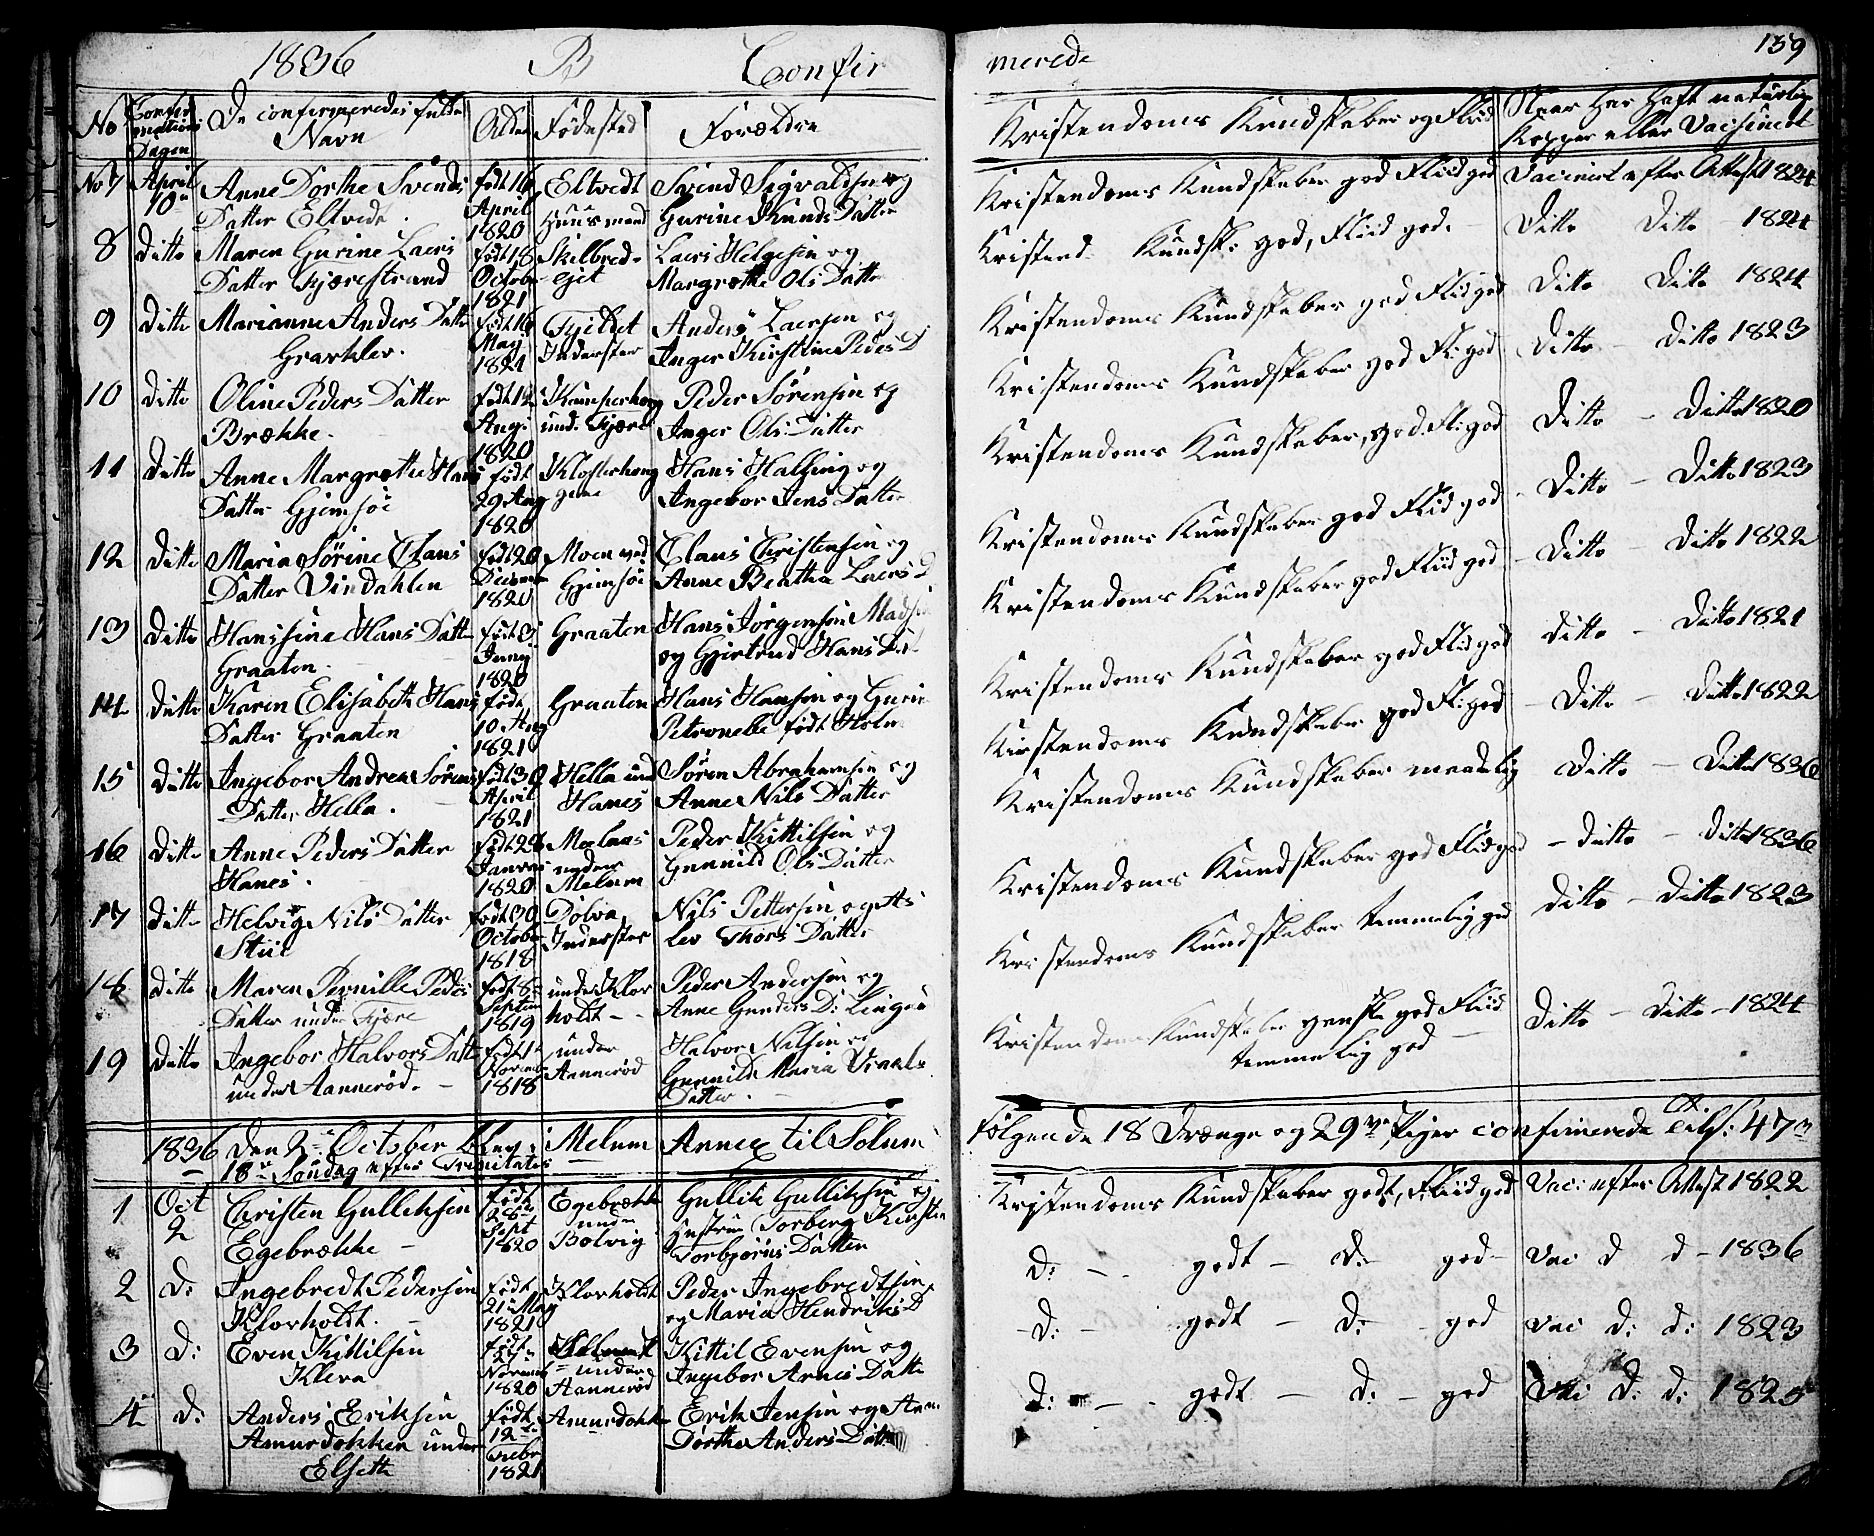 1836 B Confir merede 139
No Confirmations Dagen De confirmeredes fulde Navn Alder Fødested Forældre Kristendoms Kundskaber og Fliid Naar Har Haft naturlige Kopper eller Vaccineret
No 7 April 10de Anne Dorthe Svends Datter Eltvedt. født 16 April 1820 Eltvedt Huusmand Svend Sigvaldsen og Gurine Knuds Datter Kristendoms Kundskaber god Fliid god Vacineret efter Attest 1824
8 Ditto Maren Gurine Laers Datter Kjærestrand født 18 Octobr 1821 Skilbredejet Laers Helgesen og Margrethe Ols Datter Kristend. Kundsk: god, Fliid god. Ditto Ditto 1824
9 Ditto Marianne Anders Datter Gravklev. født 16 May 1821 Inderster Anders Laersen og Inger Kirstine Peders D Kristendoms Kundskaber god Flid god Ditto Ditto 1824
10 Ditto Oline Peders Datter Brække. født 12 Aug. 1820 und. Fjære Peder Sørensen og Inger Ols Datter Kristendoms Kundskaber god Fl: god Ditto Ditto 1823
11 Ditto Anne Margrethe Hans Datter Gjemsøe født 29 Aug 1820 Klosterhougene Hans Halling og Ingebor Jens Datter Kristendoms Kundskaber, god. Fl: god Ditto - Ditto 1820
12 Ditto Maria Sørine Claus Datter Vindahlen født 20 Decemb 1820 Moen ved Gjemsøe Claus Christensen og Anne Beathe Laers D Kristendoms Kundskaber god Flid god - Ditto - Ditto 1823
13 Ditto Hanssine Hans Datter Graaten. født 3 Juny 1820 Graaten Hans Jørgensen Madsen og Gjertrud Hans Dat Kristendoms Kundskaber god Fliid god - Ditto - Ditto 1822
14 Ditto Karen Elisabeth Hans Datter Graaten født 10 Aug 1821 Graaten Hans Hansen og Gurin Petronelle født Holm Kristendoms Kundskaber god Flid god Ditto - Ditto 1821
15 Ditto Ingebor Andrea Sørens Datter Hella. født 30 April 1821 Hella und Hanes Søren Abrahamsen og Anne Nils Datter Kristendoms Kundskaber god Fl: god - Ditto - Ditto 1822
Kristendoms Kundskaber maadelig Ditto - Ditto 1836
16 Ditto Anne Peders Datter Hanes. født 29 Januar 1820 under Melum Peder Kittilsen og Gunnild Ols Datter Kristendoms Kundskaber god Flid god - Ditto - Ditto 1836
17 Ditto Helvig Nils Datter Stiil født 30 October 1818 Dølva Inderster Nils Pettersen og As lev Thors Datter Kristendoms Kundskaber temmelig god Ditto - Ditto 1823
18 Ditto Maren Pernille Peders Datter under Fjære født 8de Septem 1819 under Klovholdt - - Peder Andersen og Anne Gunders D:
19 Ditto Ingebor Halvors Datt under Aannerød. - født 1te Novem 1818 under Aannerød Halvor Nilsen og Gunnild Maria Datter. Kristendoms Kundskaber ganske god Fliid temmelig god - Ditto - Ditto - 1824
1836 Den 2de October 18de Søndag efter Trinitatis Melum Annex til Solum følgende 18 Drænge og 29ve Piger confirmerede tils: 47
1 Oct 2 Christen Gulleksen Egebrække - født 28de Sept 1820 Egebrække under Bolvig Gullik Gulliksen og Hustrue Torberg Kirstin Torbjørns Datter Kristendoms Kundskaber godt, Fliid god Vac: efter Attest 1822
2 D: Ingebredt Pedersen Klovholdt. - født 21 May 1821 Klovholdt Peder Ingebredtsen og Maria Hendriks D D: - godt - D: god - Vac d d - 1836
3 D: Even Kittilsen Kleva født 27 Novemb 1820 under Aannerød Kittil Evensen og Ingebor Arnes Datte - D: - godt - D: - god Vac D: D: 1823
4 D: Anders Eriksen Amundokken under Elsette født 12 Febr 1821 Amundokk Erik Jensen og Ann Dorthe Anders Datter D: - godt - D: - god Vac D: D: 1825